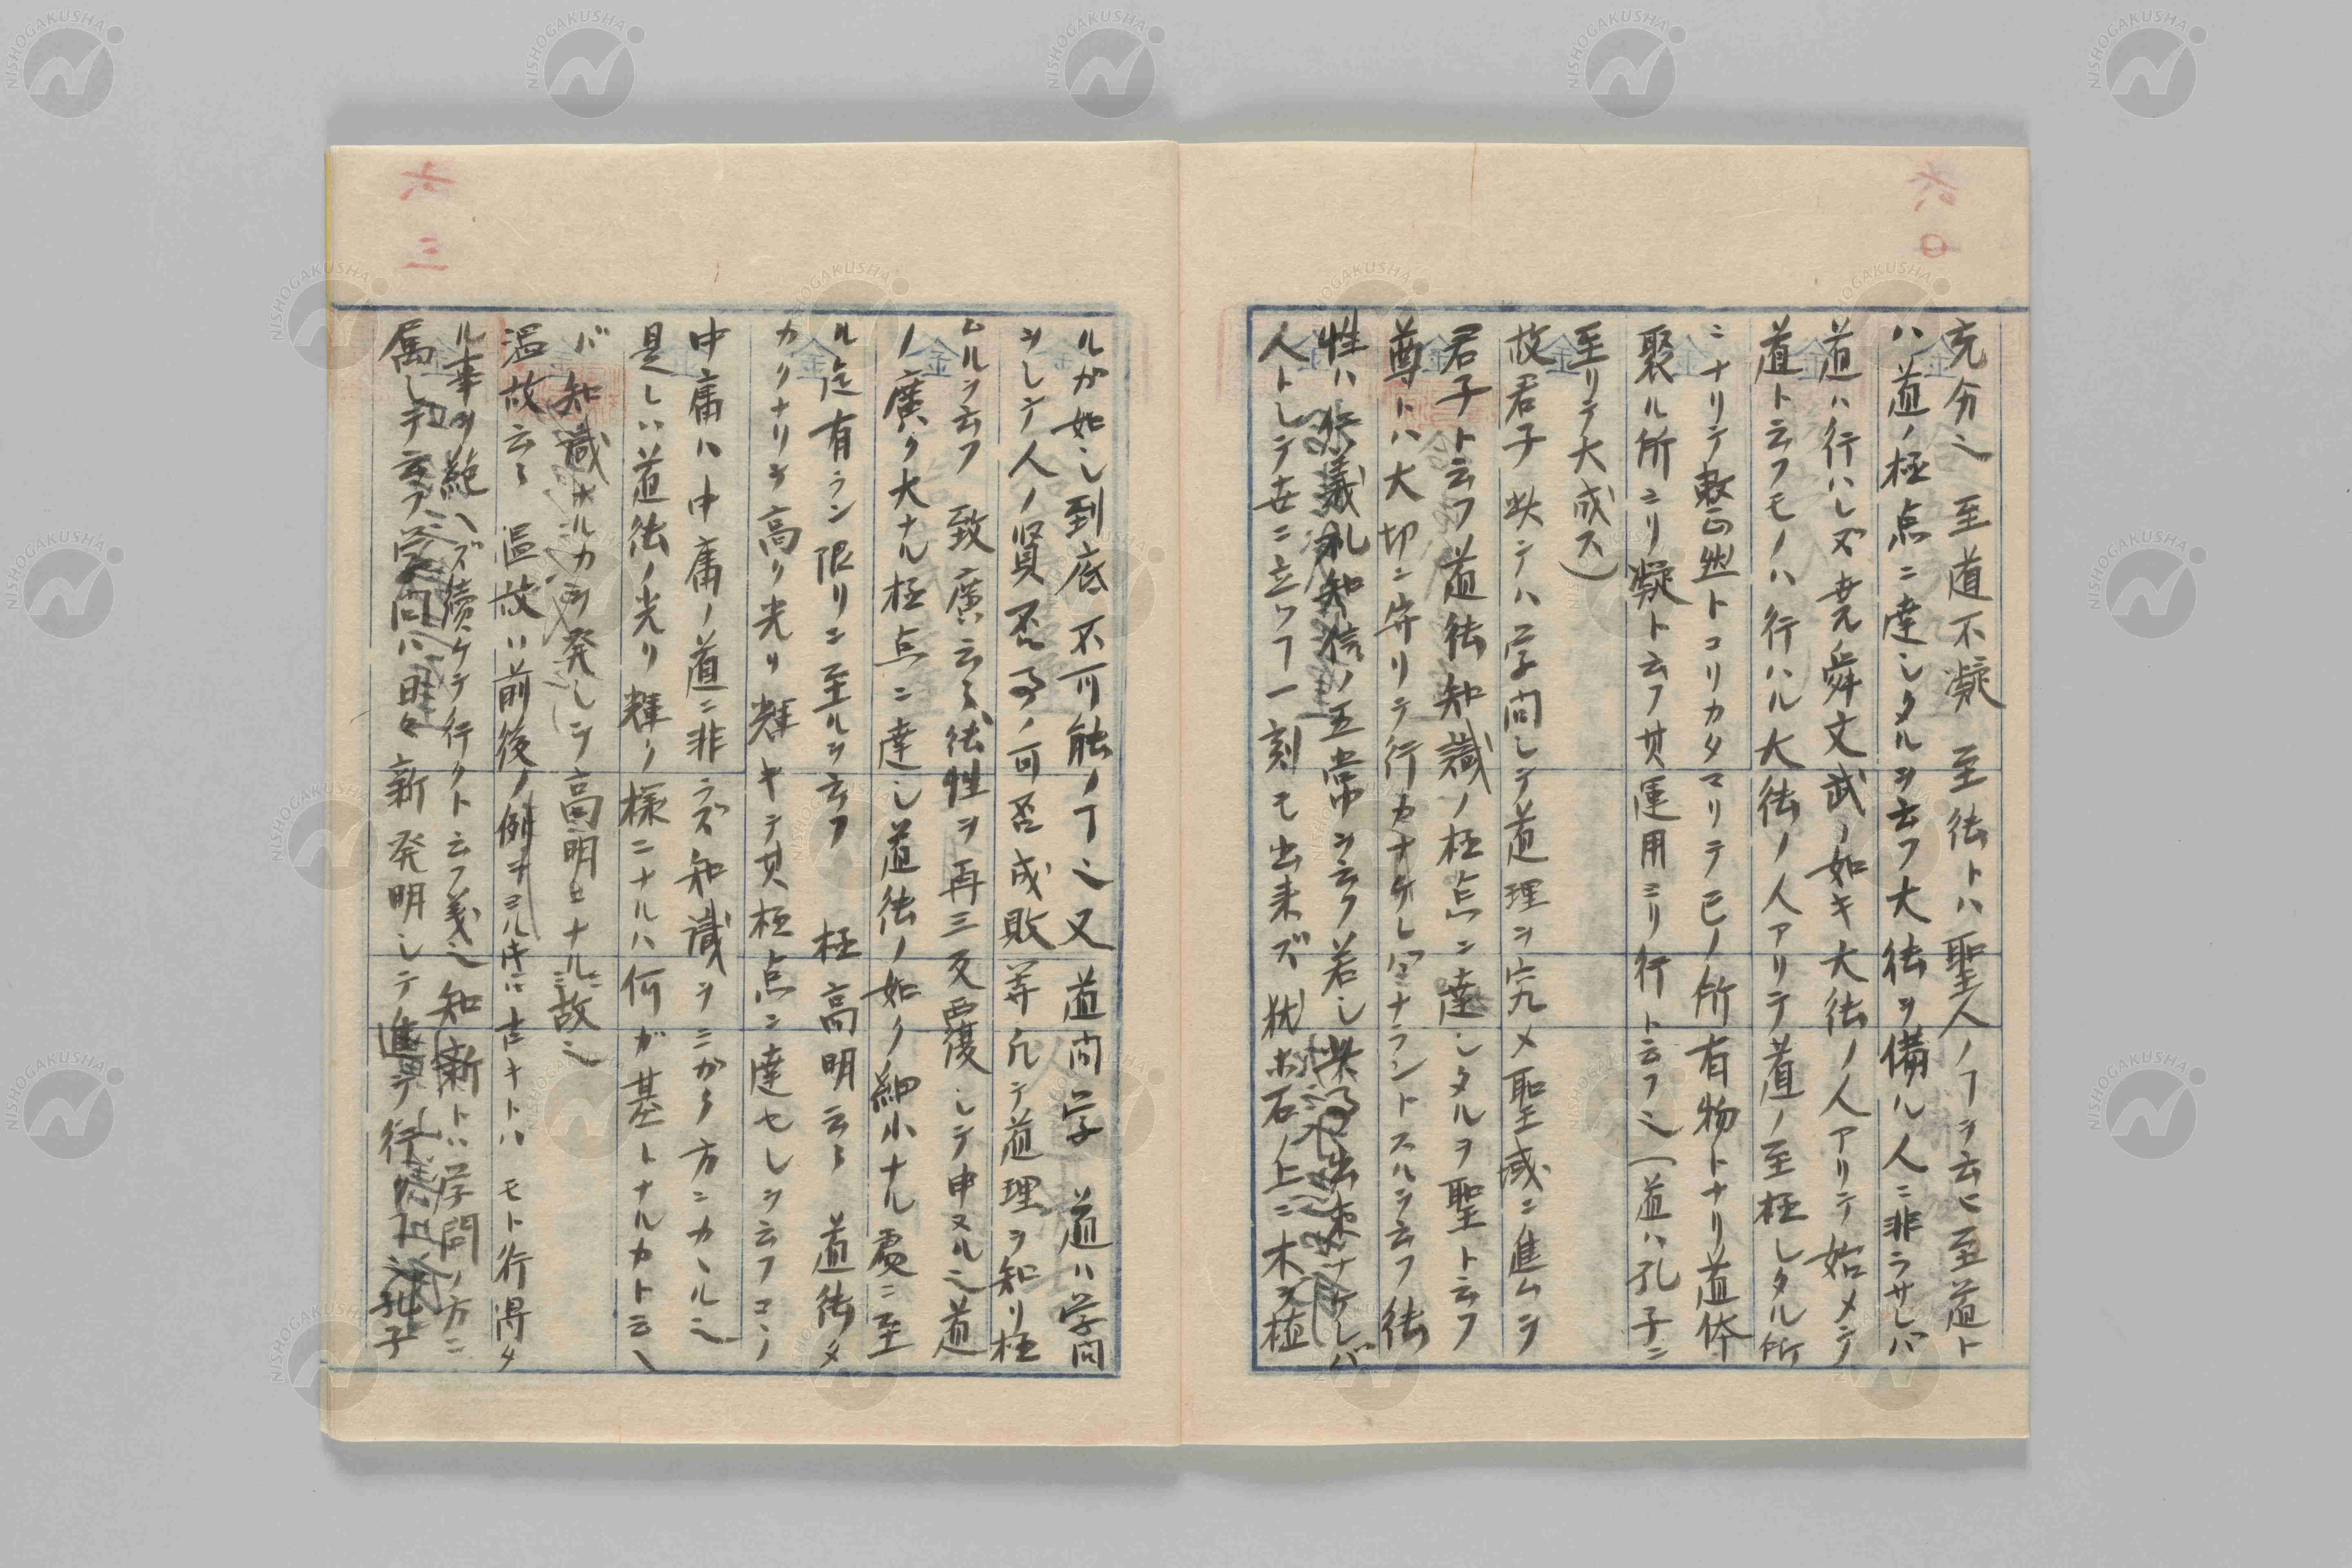 充分ニ 至道不凝 至徳トハ聖人ノヿヲ云ヒ至道ト
ハ道ノ極点ニ達シタルヲ云フ大徳ヲ備ル人ニ非ラサレバ
道ハ行ハレズ尭舜文武ノ如キ大徳ノ人アリテ始メテ
道ト云フモノハ行ハル大徳ノ人アリテ道ノ至極シタル所
ニナリテ整然トコリカタマリテ己ノ所有物トナリ道体
聚ル所ニリ凝ト云フ其運用ミリ行ト云フ也(道ハ孔子ニ
至リテ大成ス)
故君子 此テハ学問シテ道理ヲ究メ聖域ニ進ムヲ
君子ト云フ道徳知識ノ極点ニ達シタルヲ聖ト云フ
尊トハ大切ニ守リテ行カナケレバナラントスルヲ云フ 徳
性ハ仁義礼知信ノ五常ヲ云フ若シ此ノ出来ナケレバ
人トシテ世ニ立ツヿ一刻モ出来ズ 猶ホ石ノ上ニ木ヲ植
ルガ如シ到底不可能ノヿ也又 道問学 道ハ学問
ヲシテ人ノ賢否ノ可否成敗 テ道理ヲ知リ極
ムルヲ云フ 致廣云々 徳性ヲ再三反覆シテ申ヌル也道
ノ廣ク大ナル極点ニ達シ道徳ノ如ク細小ナル處ニ至
ル迄有ラン限リニ至ルヲ云フ 極高明云々 道徳タ
カクナリヲ高リ光リ輝キテ其極点ニ達セシヲ云フココノ
中庸ハ中庸ノ道ニ非ラズ知識ヲミガク方ニカヽル也
是レハ道徳ノ光リ輝ク様ニナルハ何ガ基トナルカト云ヘ
バ知識ホルカヲ発シテ高明ヒナル故也
温故云々 温故ハ前後ノ例ヲコルキハ吉キトハ モト行得タ
ル事ヲ絶ヘズ續ケテ行クト云フ義也知新トハ学問ノ方ニ
属シテ云フ学問ハ日々新発明シテ進ヲ行 孔子
六〇
六三
NISHOGAKUSHA